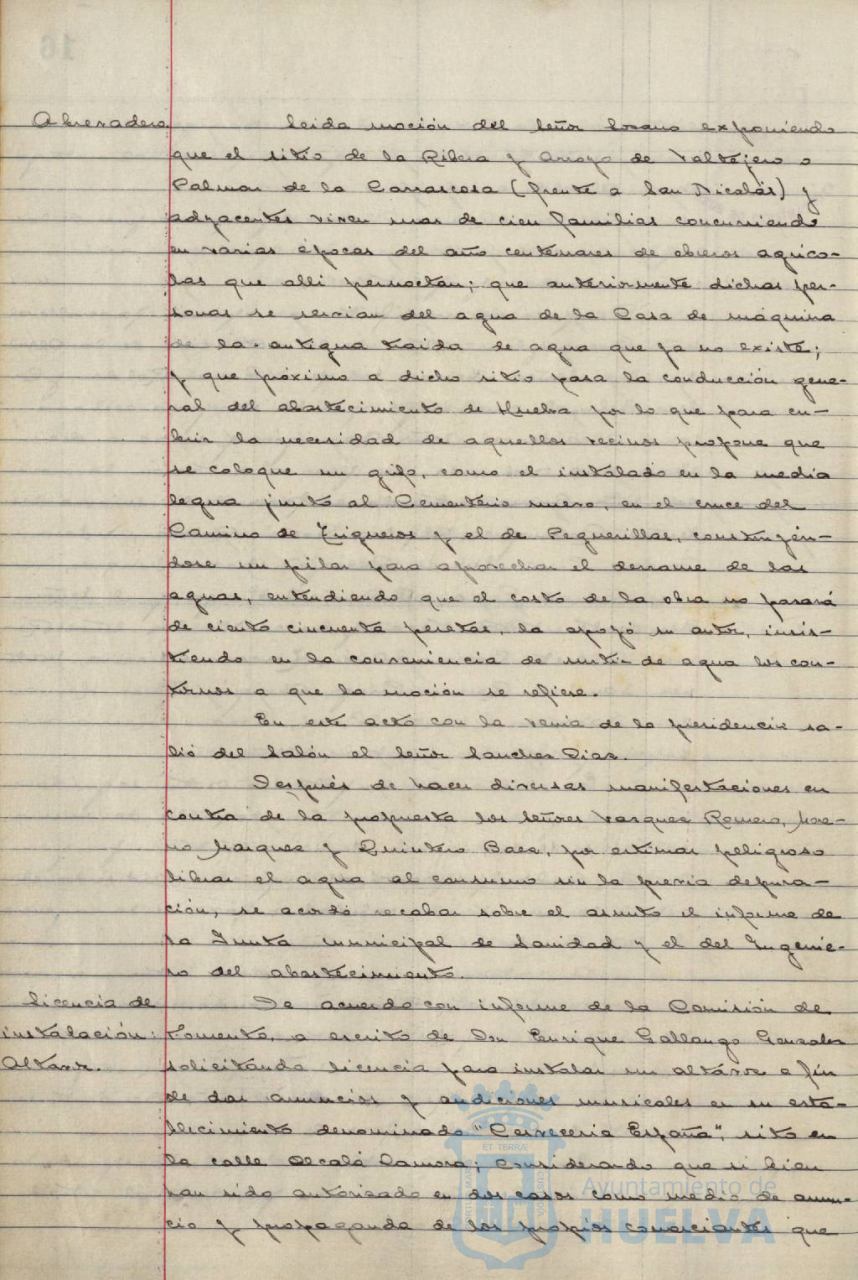 Abrevadero. Leida moción del Señor Lozano exponiendo
que el sitio de la Ribera y Arroyo de Valtejero o
Palmar de la Carrascosa (frente a San Nicolás) y
adyacentes viven mas de cien familias concurriendo
en varias épocas del año centenares de obreros agrico-
las que alli pernoctan; que anteriormente dichas per-
sonas se servian del agua de la Casa de máquina
de la antigua traida de agua que ya no existe;
y que próximo a dicho sitio pasa la conducción gene-
ral del abastecimiento de Huelva por lo que para cu-
brir la necesidad de aquellos vecinos propone que
se coloque un grifo, como el instalado en la media
legua junto al Cementerio nuevo, en el cruce del
Camino de Trigueros y el de Peguerillas, construyén-
dose un pilar para aprovechar el derrame de las
aguas, entendiendo que el costo de la obra no pasará
de ciento cincuenta pesetas, la apoyó su autor, insis-
tiendo en la conveniencia de surtir de agua los con-
tornos a que la moción se refiere.
En este acto con la venia de la presidencia sa-
lió del Salón el Señor Sanchez Diaz.
Después de hacer diversas manifestaciones en
contra de la propuesta los Señores Vazquez Romero, More-
no Marquez y Quintero Baez, por estimar peligroso
librar el agua al consumo sin la previa depura-
ción, se acordó recabar sobre el asunto el informe de
la Junta municipal de Sanidad y el del Ingenie-
ro del abastecimiento.
Licencia de De acuerdo con informe de la Comisión de
instalación: Fomento, a escrito de Don Enrique Gallango Gonzalez
Altavz. solicitando licencia para instalar un altavoz a fin
de dar anuncios y audiciones musicales en su esta-
blecimiento denominado "Cerveceria España", sito en
la calle Alcalá Zamora; Considerando que si bien
han sido autorizado en dos casos como medio de anun-
cio y propaganda de los propios comerciantes que
Ayuntamiento de
HUELVA